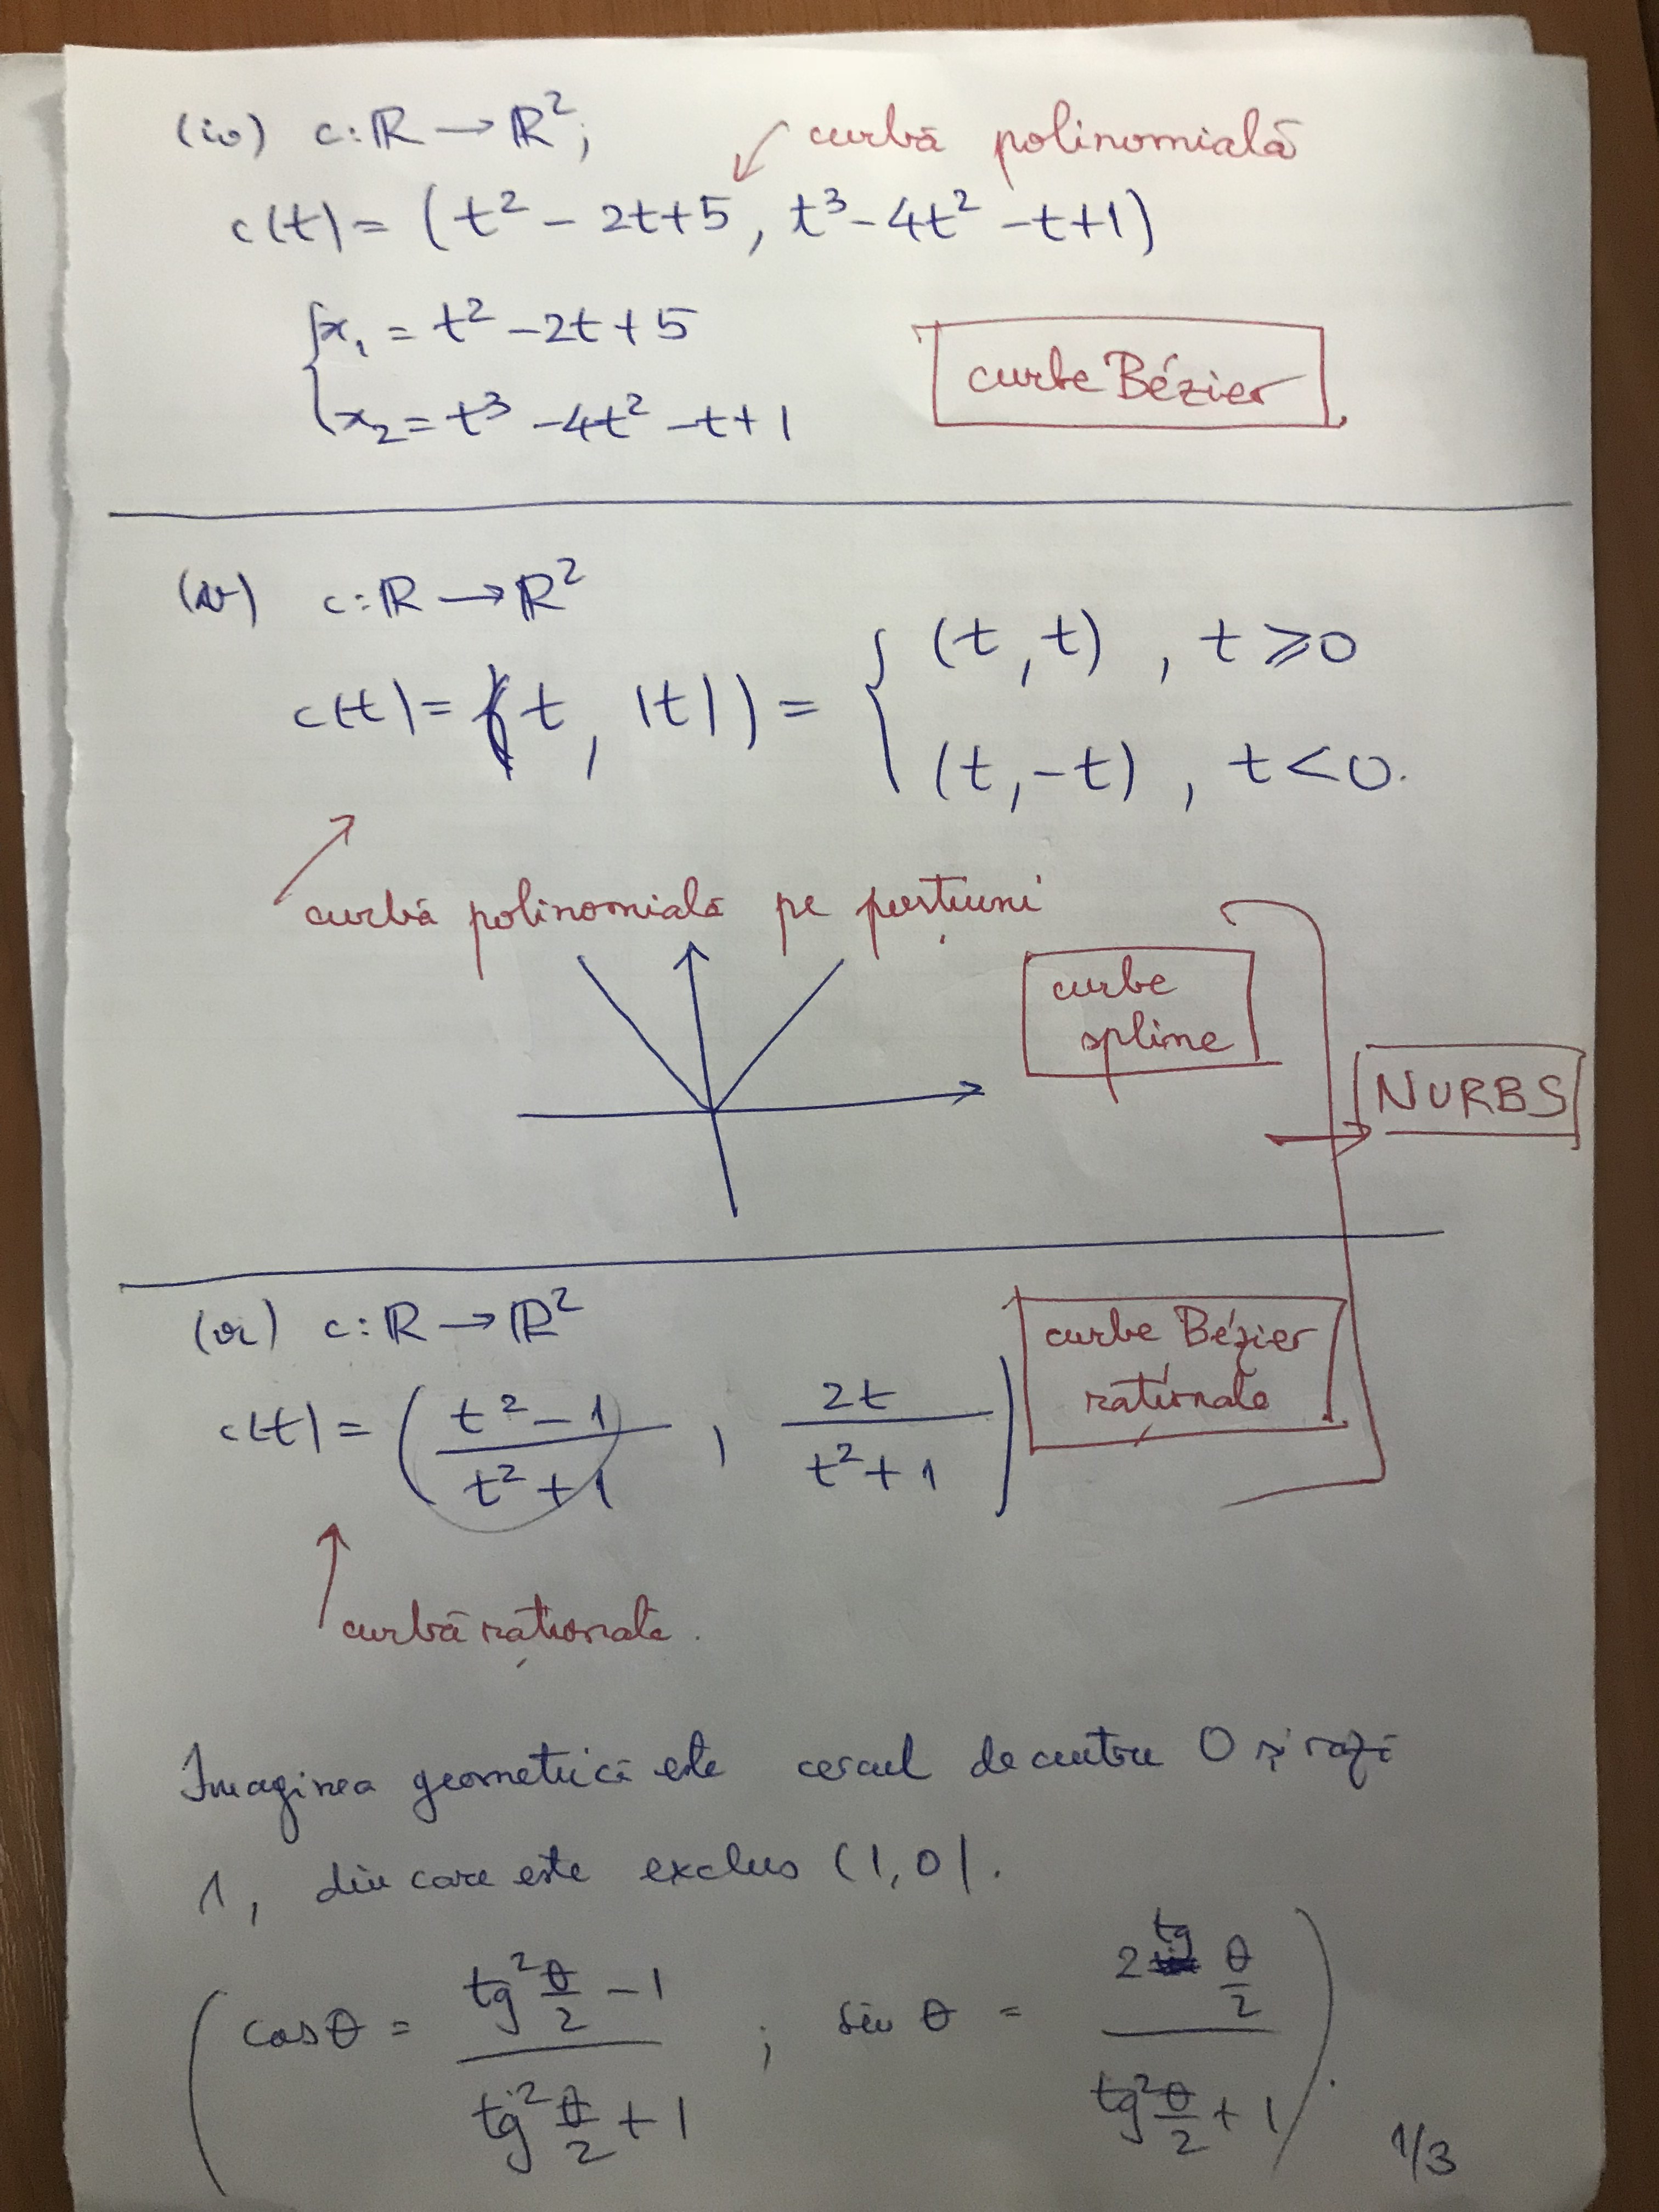 (iv) c: ℝ → ℝ²;
curbă polinomială
c(t) = (t² - 2t + 5, t³ - 4t² - t + 1)
{ x₁ = t² - 2t + 5
x₂ = t³ - 4t² - t + 1
curbe Bézier
(v) c: ℝ → ℝ²
c(t) = (t, |t|) = { (t, t), t ⩾ 0
(t, -t), t < 0.
curbă polinomială pe porțiuni
curbe
spline
NURBS
(vi) c: ℝ → ℝ²
c(t) = ( (t² - 1)/(t² + 1), 2t/(t² + 1) )
curbe Bézier
raționale
curbă rațională.
Imaginea geometrică este cercul de centru O și rază
1, din care este exclus (1, 0).
( cos θ = (tg² θ/2 - 1)/(tg² θ/2 + 1) ; sin θ = (2 tg θ/2)/(tg² θ/2 + 1) ).
1/3